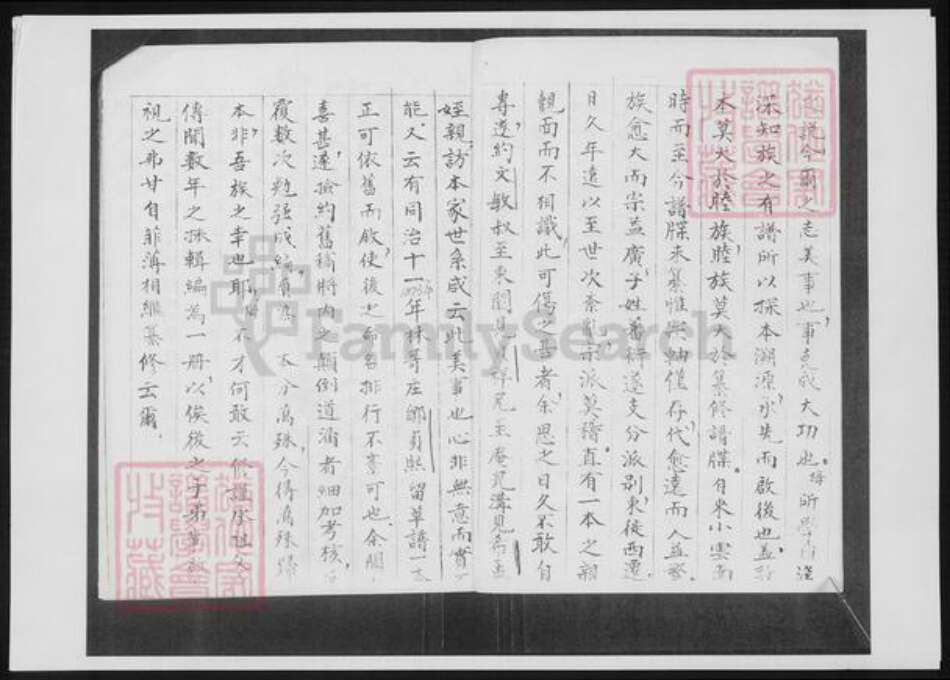 今爾之志美事也事克成大功也
深知族之有譜所以探本溯源承先而啟後也蓋
本莫大於睦族睦族莫大於纂修譜牒自米小雲南
時而至今譜牒未纂惟與軸僅存代愈遠而人益繁
族愈大而宗益廣子姓蕃衍遂支分派別東徙西遷
日久年遠以至世次紊亂宗派莫稽直有一本之親
覿面而不相識此可傷之甚者余思之日久不敢自
專遂約文敏叔至東閣兄
姪親訪本家世系咸云此美事也心非無意而實
能又云有同治十一年林哥庄鄉貢熙留草譜一本
正可依舊而啟使後之命名排行不紊可也余聞
喜甚遂撿約舊稿將內之顛倒遺漏者細加考核
覆數次勉強成 不分萬殊今得萬殊歸
本非吾族之幸也耶 不才何敢云似祖承
傳聞數年之採輯編為一册以俟後之子弟
視之弗甘自菲薄相繼纂修云爾
FamilySearch